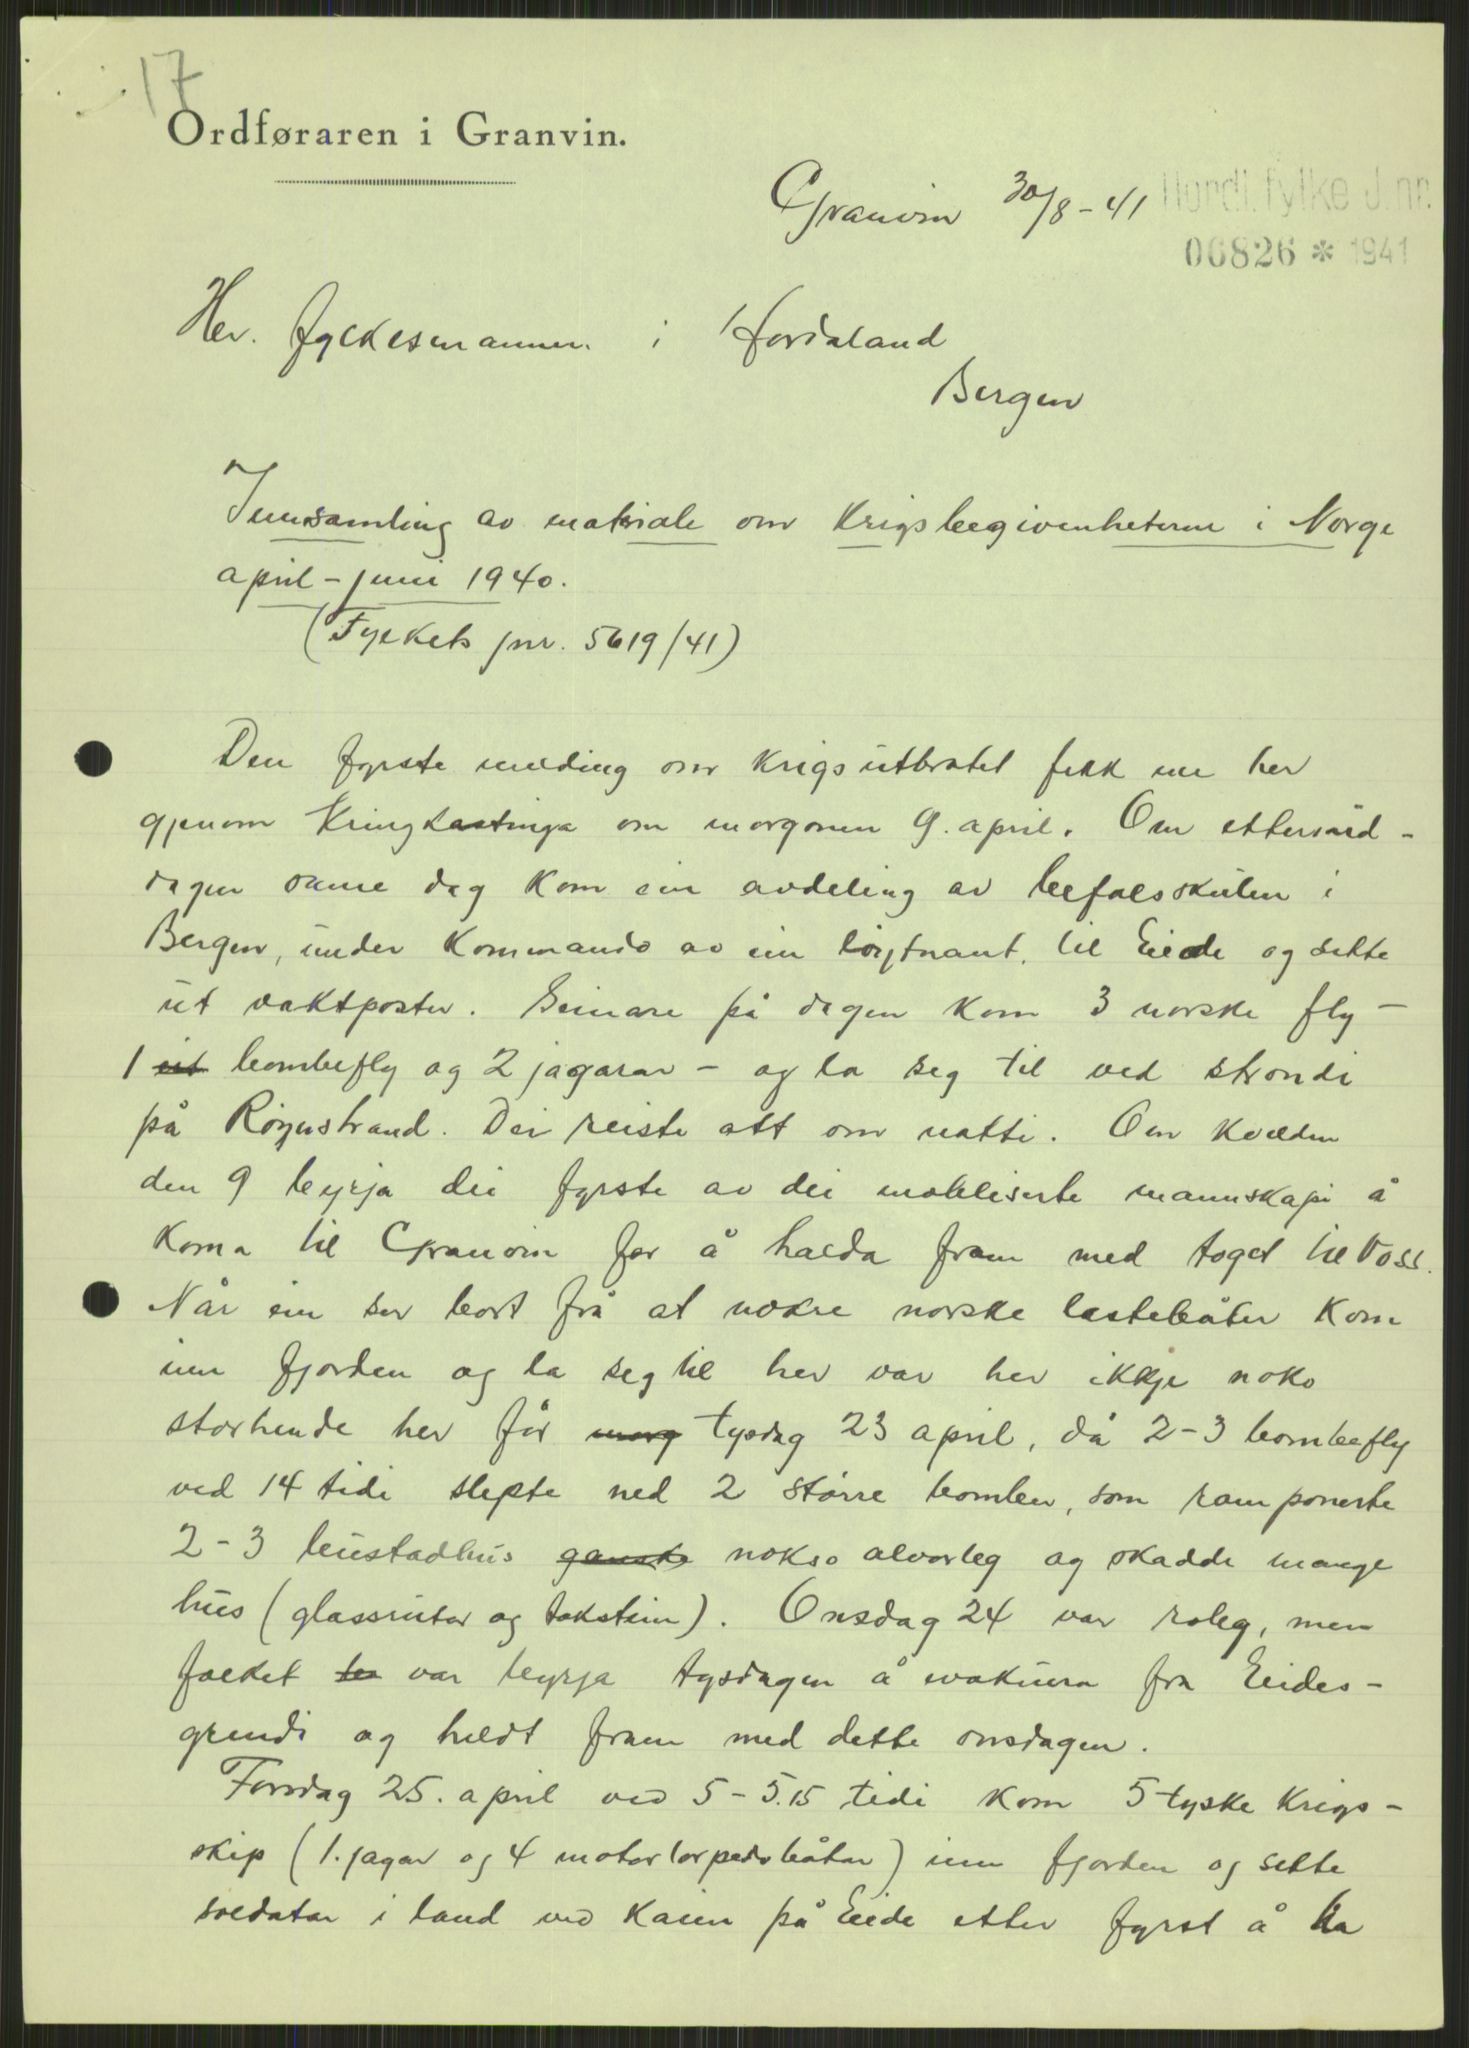 17
Ordføraren i Granvin.
Granvin 30/8-41
Hordl. fylke J.nr.
06826 * 1941
Her. fylkesmannen i Hordaland
Bergen
Innsamling av materiale om Krigsbegivenhetene i Norge
april - juni 1940.
(Fylkets jnr. 5619/41)
Den fyrste melding om krigsutbrotet fekk me her
gjenom Kringkastinga om morgonen 9. april. Om ettermid-
dagen same dag kom ein avdeling av befalsskulen i
Bergen, under kommando av ein løytnant, til Eide og sette
ut vaktposter. Seinare på dagen kom 3 norske fly -
1 eit bombefly og 2 jagarar - og la seg til ved strondi
på Røynstrand. Dei reiste att om natti. Om kvelden
den 9 byrja dei fyrste av dei mobiliserte mannskapi å
koma til Granvin for å halda fram med toget til Voss.
Når ein ser bort frå at nokre norske lastebåter kom
inn fjorden og la seg til her var her ikkje noko
storhende her før morg tysdag 23 april, då 2-3 bombefly
ved 14 tidi slepte ned 2 større bomber, som ramponerte
2-3 bustadhus ganske nokso alvorleg og skadde mange
hus (glassrutor og takstein). Onsdag 24 var roleg, men
folket to var byrja tysdagen å evakuera fra Eides-
grendi og heldt fram med dette onsdagen.
Torsdag 25. april ved 5-5.15 tidi kom 5 tyske krigs-
skip (1. jagar og 4 motortorpedobåtar) inn fjorden og sette
soldatar i land ved kaien på Eide etter fyrst å ha